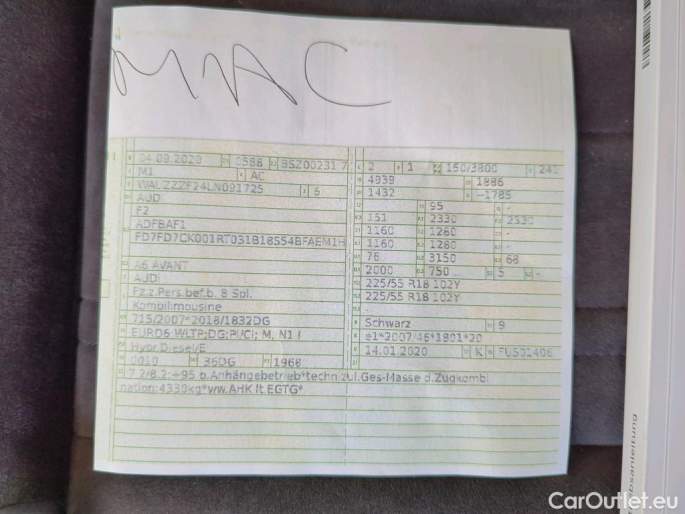 MNAC
04.09.2020 0588 BSZ00231 7
M1 AC
WAUZZZF24LN091725 6
AUDI
F2
ADFBAF1
A6 AVANT
AUDI
Fz.z.Pers.bef.b. 8 Spl.
Kombilimousine
715/2007*2018/1832DG
EURO6 WLTP;DG;PI/CI; M, N1 I
Hybr.Diesel/E
0010 36DG 1968
7.2/8.2:+95 b.Anhängebetrieb*techn.zul.Ges-Masse d.Zugkombi
nation:4330kg*ww.AHK lt.EGTG*
2 1 150/3800 241
4939 1886
1432 -1785
95 -
151 2330 2330
1160 1260 -
1160 1260 -
76 3150 68
2000 750 5 -
225/55 R18 102Y
225/55 R18 102Y
-
Schwarz 9
e1*2007/46*1801*20
14.01.2020 K FU501406
bsanleitung
CarOutlet.eu